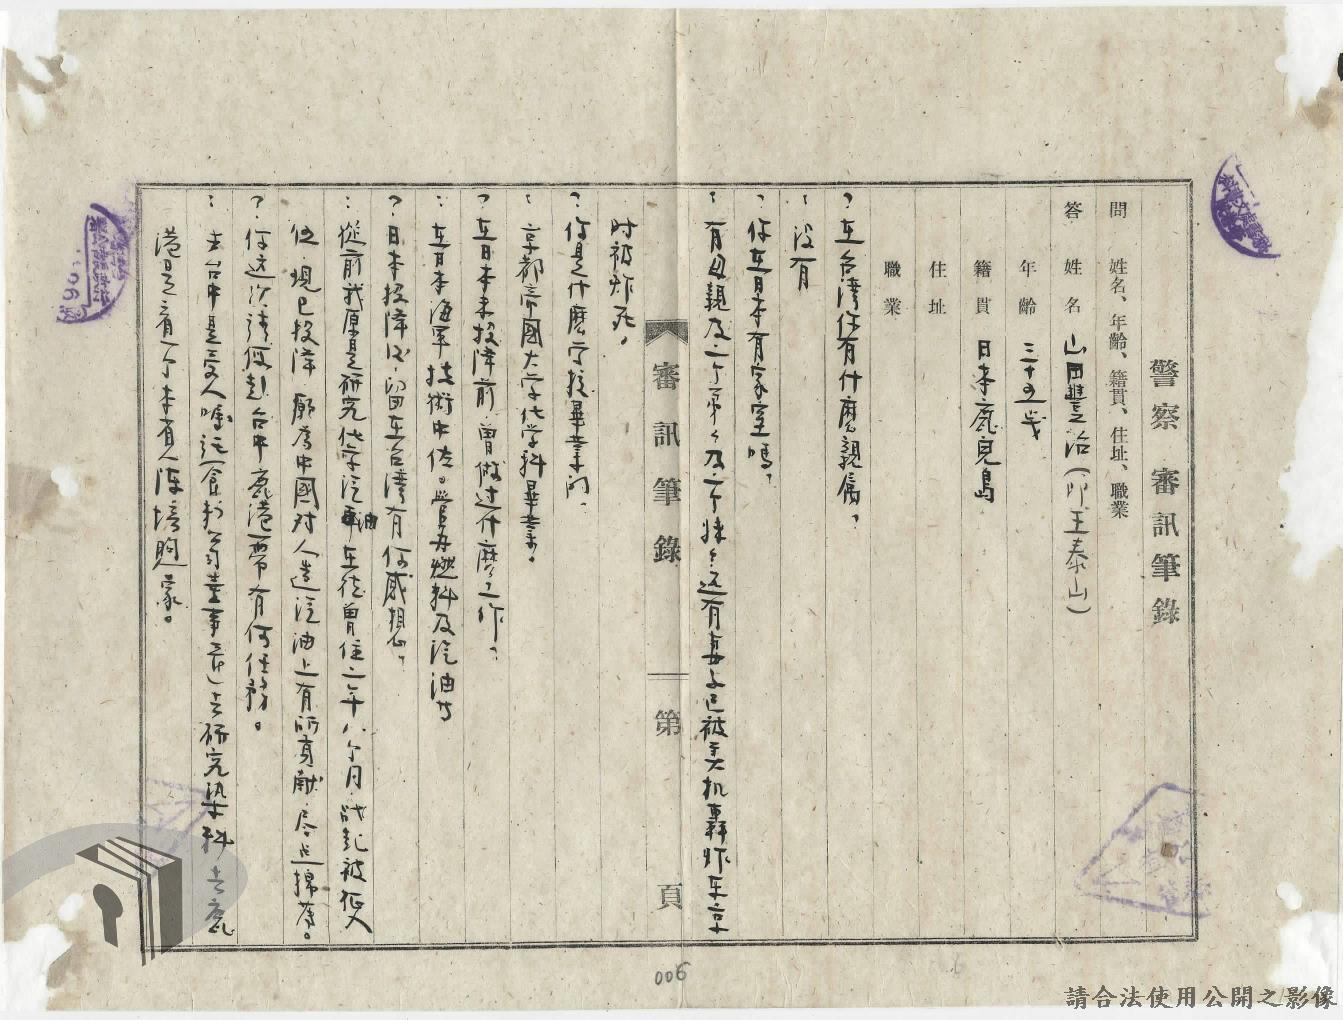 警察審訊筆錄
問 姓名、年齡、籍貫、住址、職業
答 姓名 山田豐治(即王泰山)
年齡 三十五歲
籍貫 日本鹿兒島
住址
職業
?在台灣你有什麽親屬?
:沒有
?你在日本有家室嗎?
:有母親及二个弟々及二个妹々还有妻子已被美机轟炸东京
时被炸死。
審訊筆錄 第 頁
?你是什麽学校畢業的
:京都帝國大学化学科畢業。
?在日本未投降前曾做过什麽工作?
:在日本海軍技術中佐。當为燃料及汽油
?日本投降后留在台灣有何感想?
:從前我原是研究化学汽油在德曾住二年八个月 战起被征入
伍 現已投降 願为中國对人造汽油上有所貢献
?你这次請假赴台中鹿港一帶有何任務。
:去台中是受人嘱託 去研究染料 去鹿
港是看一个本省人陳培煦家。
006
請合法使用公開之影像